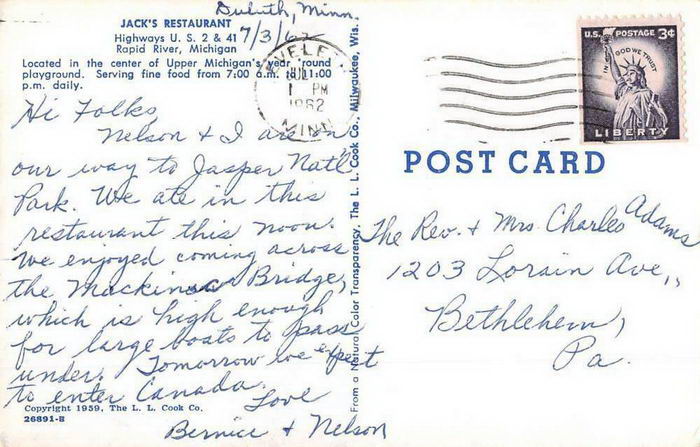 Duluth, Minn.
7/3/62
JACK'S RESTAURANT
Highways U. S. 2 & 41
Rapid River, Michigan
Located in the center of Upper Michigan's year 'round
playground. Serving fine food from 7:00 a.m. to 11:00
p.m. daily.
Hi Folks,
Nelson & I are on
our way to Jasper Nat'l
Park. We ate in this
restaurant this noon.
We enjoyed coming across
the Mackinac Bridge,
which is high enough
for large boats to pass
under. Tomorrow we expect
to enter Canada.
Love
Bernice & Nelson
Copyright 1959, The L. L. Cook Co.
26891-B
From a Natural Color Transparency, The L. L. Cook Co., Milwaukee, Wis.
PM
1962
MINN
U.S. POSTAGE 3¢
IN GOD WE TRUST
LIBERTY
POST CARD
The Rev. & Mrs. Charles Adams
1203 Lorain Ave.,
Bethlehem,
Pa.